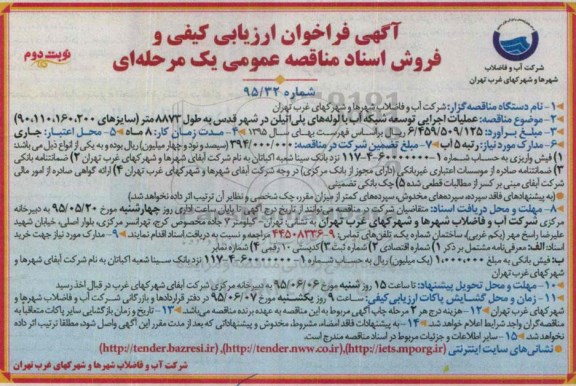 آگهی فراخوان ارزیابی کیفی و
فروش اسناد مناقصه عمومی یک مرحله‌ای
نوبت دوم
شرکت آب و فاضلاب
شهرها و شهرکهای غرب تهران
شماره ۹۵/۳۲
۱- نام دستگاه مناقصه‌گزار: شرکت آب و فاضلاب شهرها و شهرکهای غرب تهران
۲- موضوع مناقصه: عملیات اجرایی توسعه شبکه آب با لوله‌های پلی‌اتیلن در شهر قدس به طول ۸۸۷۳ متر (سایزهای ۲۰۰،۱۶۰،۱۱۰،۹۰)
۳- مبلغ برآورد: ۶/۴۵۹/۵۰۹/۱۲۵ ریال براساس فهرست بهای سال ۱۳۹۵ ۴- مدت زمان کار: ۸ ماه ۵- محل اعتبار: جاری
۶- مدارک مورد نیاز: رتبه ۵ آب ۷- مبلغ تضمین شرکت در مناقصه: ۳۹۴/۰۰۰/۰۰۰ (سیصد و نود و چهار میلیون) ریال بوده و به یکی از انواع ذیل می‌باشد:
۱) فیش واریزی به حساب شماره ۱-۶۰۰۰۰۰۰-۴-۱۱۷ نزد بانک سینا شعبه اکباتان به نام شرکت آبفای شهرها و شهرکهای غرب تهران ۲) ضمانتنامه بانکی
۳) ضمانتنامه صادره از موسسات اعتباری غیربانکی (دارای مجوز از بانک مرکزی) در وجه شرکت آبفای شهرها و شهرکهای غرب تهران ۴) ارائه گواهی صادره از امور مالی
شرکت آبفای مبنی بر کسر از مطالبات قطعی شده ۵) چک بانکی تضمینی
(به پیشنهادهای فاقد سپرده، سپرده‌های مخدوش، سپرده‌های کمتر از میزان مقرر، چک شخصی و نظایر آن ترتیب اثر داده نخواهد شد)
۸- مهلت و محل دریافت اسناد: متقاضیان شرکت در مناقصه می‌توانند از تاریخ درج آگهی تا پایان ساعت اداری روز چهارشنبه مورخ ۹۵/۰۵/۲۰ به دبیرخانه
مرکزی شرکت آب و فاضلاب شهرها و شهرکهای غرب تهران به نشانی: تهران- کیلومتر ۲ جاده مخصوص کرج، تهرانسر مرکزی، بلوار اصلی، خیابان شهید
علیرضا راسخ مهر (یکم غربی)، ساختمان شماره یک، تلفن‌های تماس: ۹-۴۴۵۰۸۳۳۶ مراجعه و نسبت به دریافت اسناد اقدام نمایند. ۹- مدارک مورد نیاز جهت خرید
اسناد: الف: معرفی‌نامه مشتمل بر ذکر ۱) شماره اقتصادی ۲) شماره ثبت ۳) کدپستی ۱۰ رقمی ۴) شماره نمابر
ب: فیش بانکی به مبلغ ۱/۰۰۰/۰۰۰ (یک میلیون) ریال به حساب شماره ۱-۶۰۰۰۰۰۰-۴-۱۱۷ نزد بانک سینا شعبه اکباتان به نام شرکت آبفای شهرها و شهرکهای
غرب تهران
۱۰- مهلت و محل تحویل پیشنهاد: تا ساعت ۱۵ روز شنبه مورخ ۹۵/۰۶/۰۶ به دبیرخانه مرکزی شرکت آبفای شهرها و شهرکهای غرب در قبال اخذ رسید
۱۱- زمان و محل گشایش پاکات ارزیابی کیفی: ساعت ۹ روز یکشنبه مورخ ۹۵/۰۶/۰۷ در دفتر قراردادها و بازرگانی شرکت آب و فاضلاب شهرها و
شهرکهای غرب تهران ۱۲- هزینه درج هر ۲ مرحله چاپ آگهی مربوط به این مناقصه به عهده برنده مناقصه می‌باشد. ۱۳- تاریخ و زمان بازگشایی سایر پاکات متعاقباً به
مناقصه‌گران واجد شرایط اعلام خواهد شد. ۱۴- به پیشنهادات فاقد امضاء، مشروط، مخدوش و پیشنهاداتی که بعد از مدت مقرر این آگهی واصل شود، مطلقا ترتیب اثر داده
نخواهد شد. ۱۵- سایر اطلاعات و جزئیات مربوط در اسناد مناقصه مندرج است.
نشانی‌های سایت اینترنتی (http://iets.mporg.ir)، (http://tender.nww.co.ir)، (http://tender.bazresi.ir)
شرکت آب و فاضلاب شهرها و شهرکهای غرب تهران